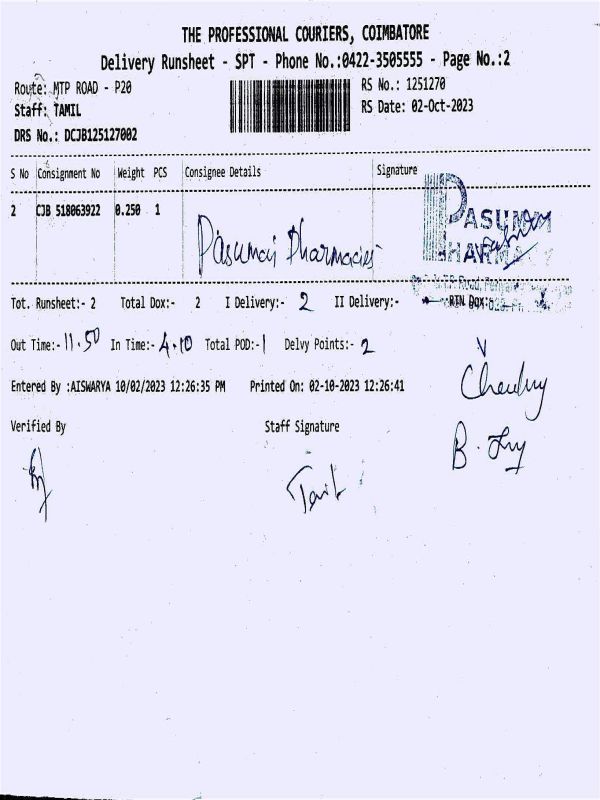 THE PROFESSIONAL COURIERS, COIMBATORE
Delivery Runsheet - SPT - Phone No.:0422-3505555 - Page No.:2
Route: MTP ROAD - P20
RS No.: 1251270
Staff: TAMIL
RS Date: 02-Oct-2023
DRS No.: DCJB125127002
S No Consignment No Weight PCS Consignee Details Signature
2 CJB 518063922 0.250 1
Pasumai Pharmacies
PASUMAI
PHARMACY
Tot. Runsheet:- 2 Total Dox:- 2 I Delivery:- 2 II Delivery:- RTN Dox:-
Out Time:- 11.50 In Time:- 4.10 Total POD:- 1 Delvy Points:- 2
Entered By :AISWARYA 10/02/2023 12:26:35 PM Printed On: 02-10-2023 12:26:41
Verified By Staff Signature
B.